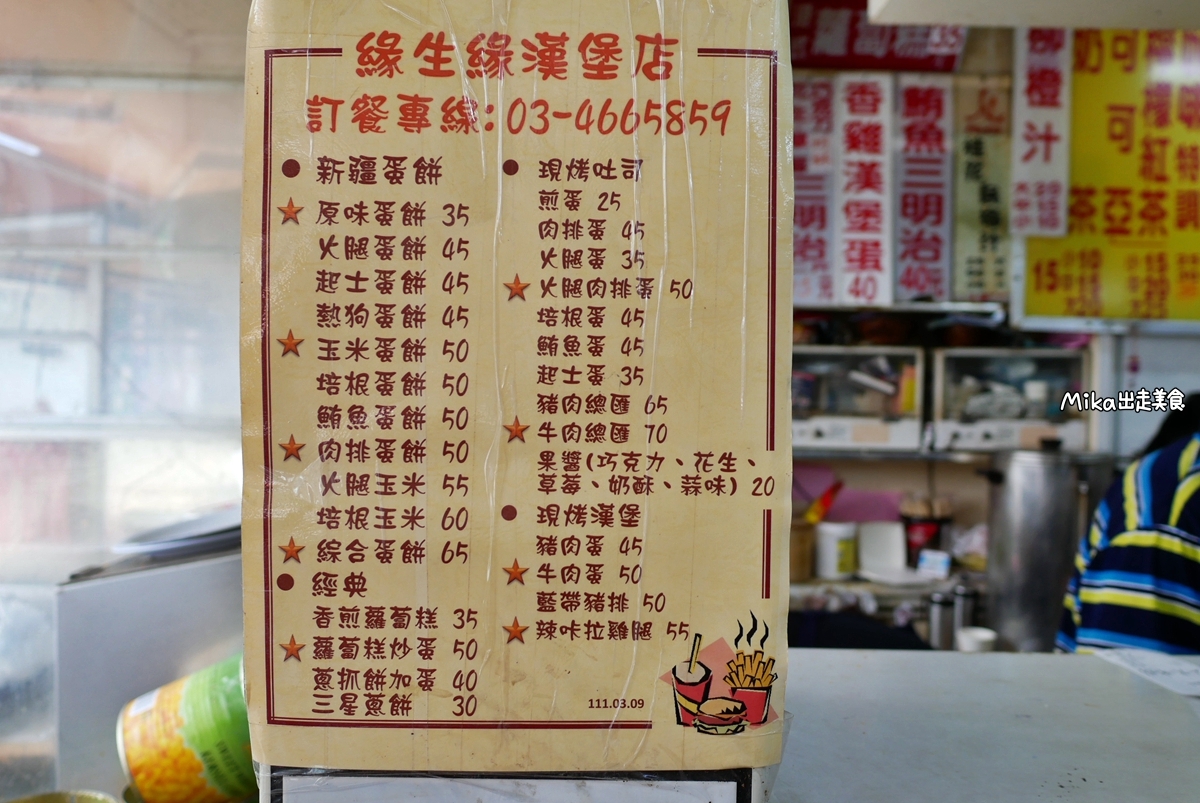 緣生緣漢堡店
訂餐專線:03-4665859
● 新疆蛋餅
★ 原味蛋餅 35
火腿蛋餅 45
起士蛋餅 45
熱狗蛋餅 45
★ 玉米蛋餅 50
培根蛋餅 50
鮪魚蛋餅 50
★ 肉排蛋餅 50
火腿玉米 55
培根玉米 60
★ 綜合蛋餅 65
● 經典
香煎蘿蔔糕 35
★ 蘿蔔糕炒蛋 50
蔥抓餅加蛋 40
三星蔥餅 30
● 現烤吐司
煎蛋 25
肉排蛋 45
火腿蛋 35
★ 火腿肉排蛋 50
培根蛋 45
鮪魚蛋 45
起士蛋 35
豬肉總匯 65
★ 牛肉總匯 70
果醬(巧克力、花生、
草莓、奶酥、蒜味) 20
● 現烤漢堡
豬肉蛋 45
★ 牛肉蛋 50
藍帶豬排 50
★ 辣咔拉雞腿 55
111.03.09
香雞漢堡蛋 40
鮪魚三明治 40元
柳橙汁
Mika出走美食